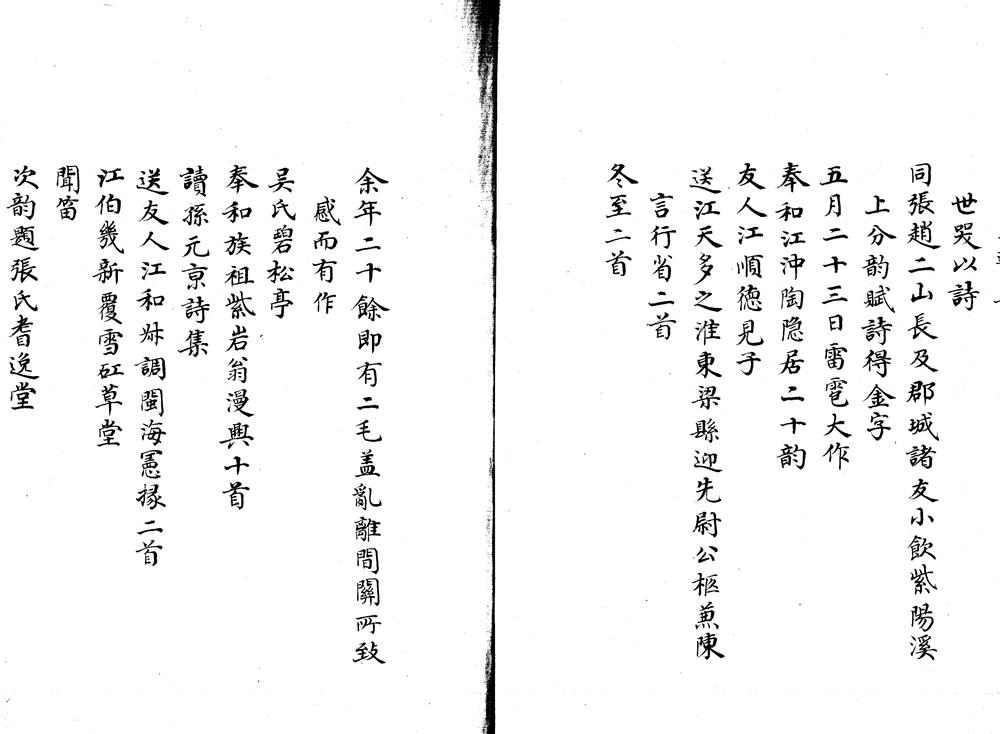 世哭以詩
同張趙二山長及郡城諸友小飲紫陽溪
上分韵賦詩得金字
五月二十三日雷雹大作
奉和江沖陶隐居二十韵
友人江順德見子
送江天多之淮東梁縣迎先尉公柩蕙陳
言行省二首
冬至二首
余年二十餘即有二毛盖亂離間關所致
感而有作
吴氏碧松亭
奉和族祖紫岩翁漫興十首
讀孫元京詩集
送友人江和叔調閩海憲掾二首
江伯幾新覆雪矼草堂
聞笛
次韵題張氏耆逸堂